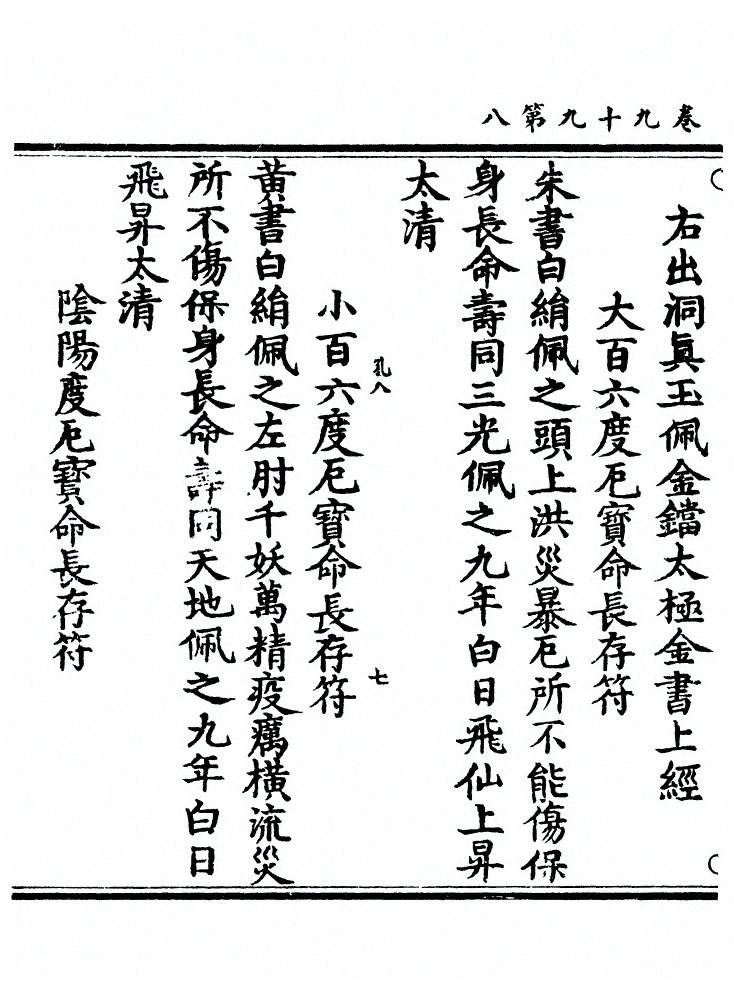 卷九十九第八
右出洞眞玉佩金鐺太極金書上經
大百六度厄寶命長存符
朱書白絹佩之頭上洪災暴厄所不能傷保
身長命壽同三光佩之九年白日飛仙上昇
太清
孔八
七
小百六度厄寶命長存符
黃書白絹佩之左肘千妖萬精疫癘橫流災
所不傷保身長命壽同天地佩之九年白日
飛昇太清
陰陽度厄寶命長存符